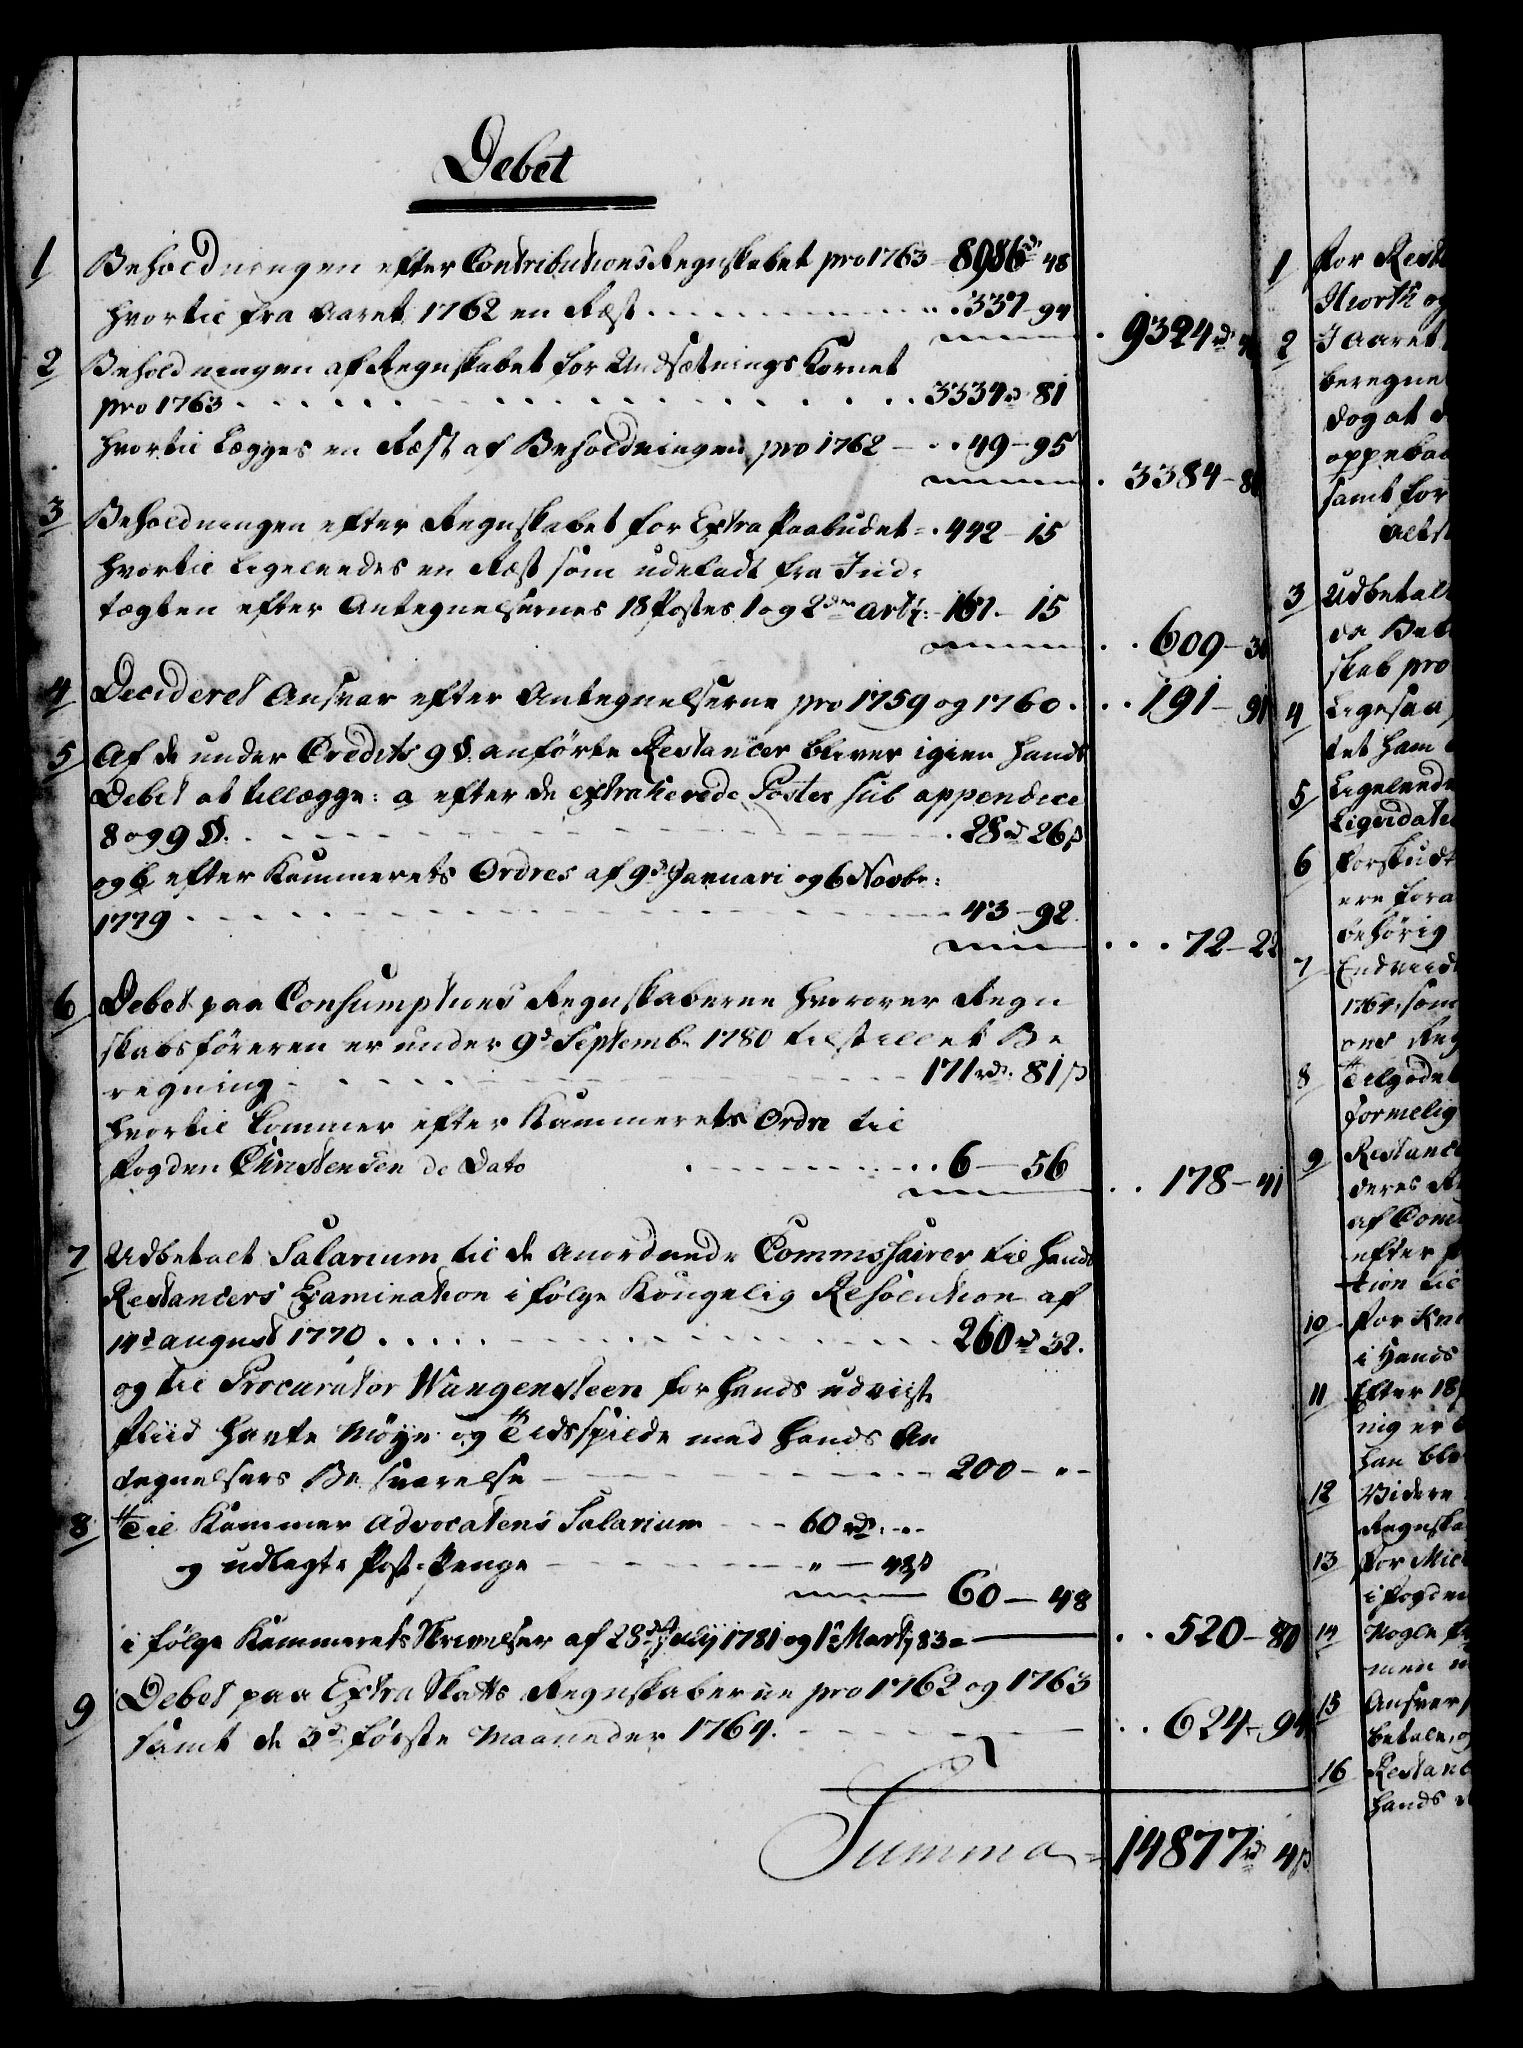 Debet
1 Beholdningen efter Contributions Regnskabet pro 1763 - 8986 rd 48
hvortil fra Aaret 1762 en Rest . . . 337 - 94
9324 rd 46
2 Beholdningen af Regnskabet for Undsætnings Kornet
pro 1763 . . . 3334 rd 81
hvortil Lægges en Rest af Beholdningen pro 1762 - . . 49 - 95
. 3384 - 80
3 Beholdningen efter Regnskabet for Extra Paabudet - . 442 - 15
hvortil Ligeleedes en Rest som udeladt fra Ind-
tægten efter Antegnelsernes 18 Postes 1 og 2den Art: - 167 - 15
. . 609 - 30
4 Decideret Ansvar efter Antegnelserne pro 1759 og 1760 . . . 191 - 91
5 Af de under Credits 9 § anførte Restancer bliver igien hands
Debet at tillægge: a efter de extraherede Poster sub appendice
8 og 9 §. . . . 28 rd 26 s
og b efter Kammerets Ordres af 9d Januari og 6 Novbr:
1779 . . . 43 - 92
. . . 72 - 22
6 Debet paa Consumptions Regnskaberne hvorover Regn
skabsføreren er under 9d Septemb. 1780 tilstillet Be
regning . . . 171 rd. 81 s
hvortil kommer efter Kammerets Ordre til
Fogden Christensen de Dato . . . 6 - 56
. . 178 - 41
7 Udbetalt Salarium til de anordnede Commissairer til hands
Restancers Examination i følge Kongelig Resolution af
14d august 1770 . . . 260 rd 32.
og til Procurator Wangensteen for hands udviiste
Fliid hafte Møye og Tidsspilde med hands An
tegnelsers Besvarelse - - - 200 - " -
8 Til Kammer Advocatens Salarium - - - 60 rd. - -
og udlagte Post-Penge - - - " - 48 s
60 - 48
i følge Kammerets Skrivelser af 28d Julij 1781 og 1d Martj 83 -
. . 520 - 80
9 Debet paa Extra Skatts Regnskaberne pro 1762 og 1763
samt de 3d første Maaneder 1764. - - - . . 624 - 94
Summa = 14877 rd 4 s
1 For Rest
Hiorth og
2 I Aaret
beregne
dog at
oppebaa
samt for
3 Udbetalt
da
skab pro
4 Ligesaa
tet ham
5 Ligeleede
Liqvidatio
6 Forskudt
ere fora
behørig
7 Endviid
1764, som
ons Reg
8 Tilgodet
formelig
9 Restance
deres
af Com
efter
tion til
10 For
i hands
11 Efter 18
nig er
han ble
12 Videre
Regnska
13 For
i fogder
14 Nogle
men
15 Ansvar
betale, o
16 Restanc
hands